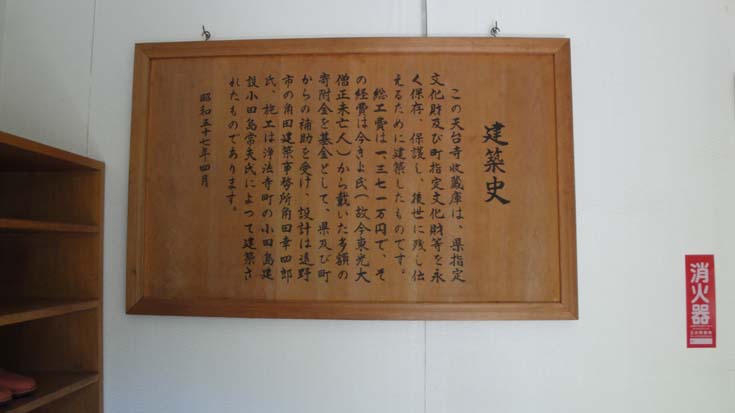 建築史
この天台寺收蔵庫は、県指定
文化財及び町指定文化財等を永
く保存、保護し、後世に残し伝
えるために建築したものです。
総工費は一、三七一万円で、そ
の経費は今きよ氏(故今東光大
僧正未亡人)から戴いた多額の
寄附金を基金として、県及び町
からの補助を受け、設計は遠野
市の角田建築事務所角田幸四郎
氏、施工は浄法寺町の小田島建
設小田島常夫氏によって建築さ
れたものであります。
昭和五十七年四月
消火器